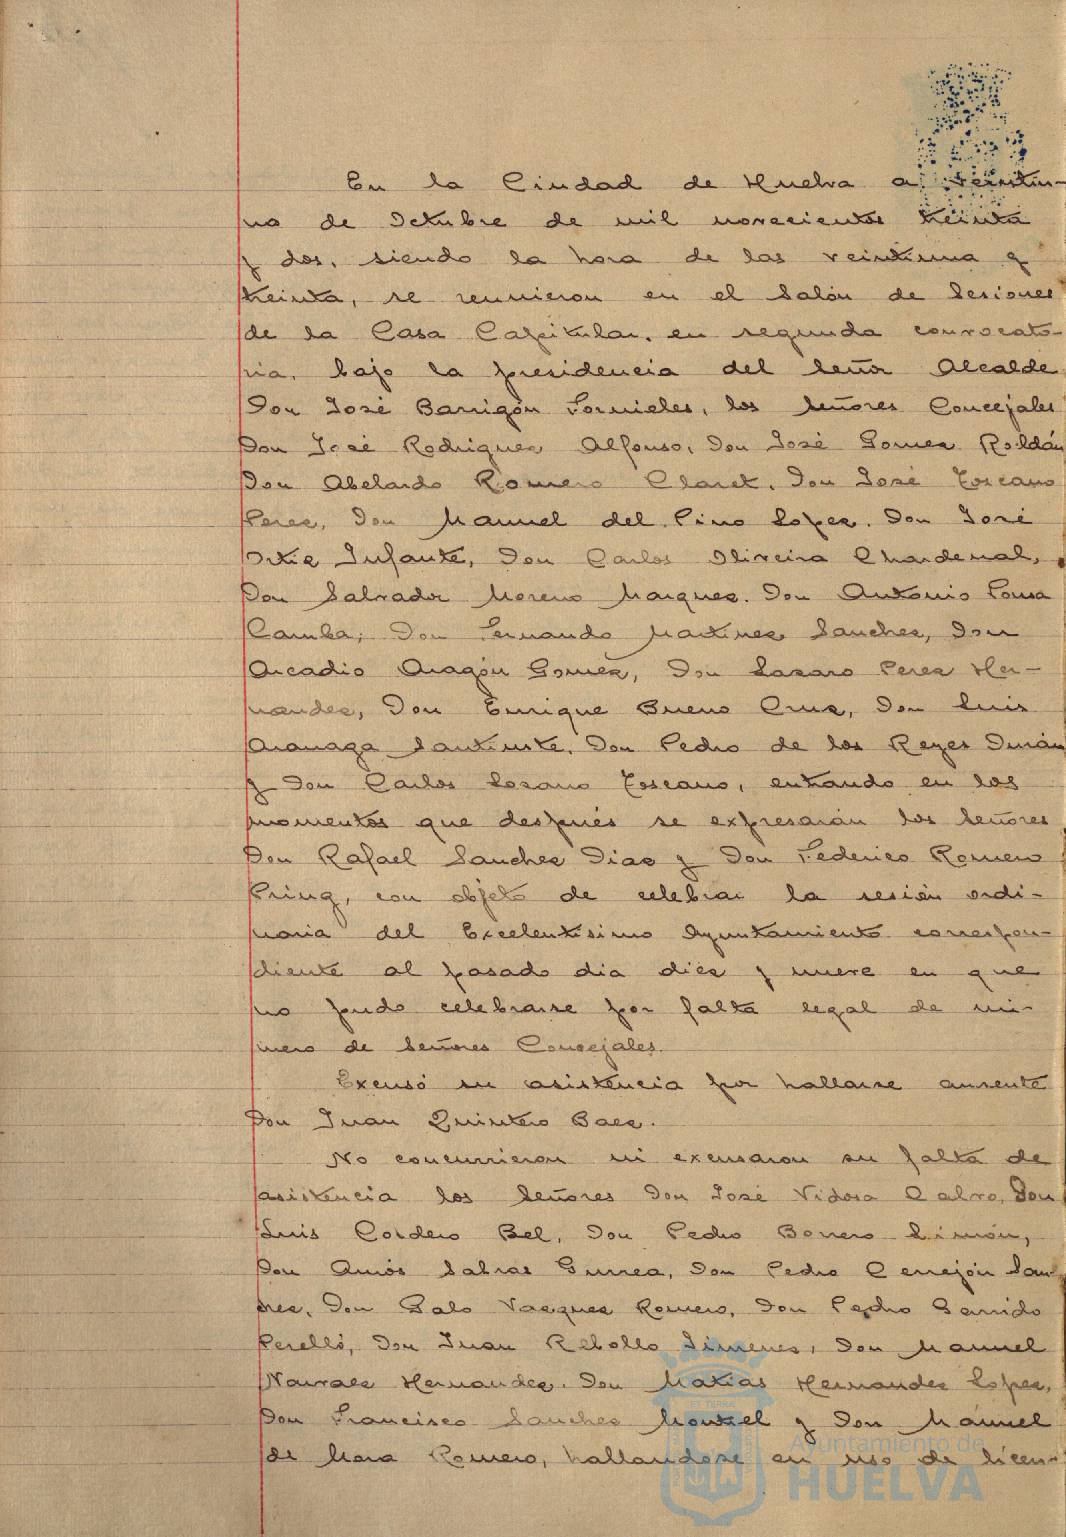 En la Ciudad de Huelva a veintiu-
no de Octubre de mil novecientos treinta
y dos, siendo la hora de las veintiuna y
treinta, se reunieron en el Salón de Sesiones
de la Casa Capitular, en segunda convocato-
ria, bajo la presidencia del Señor Alcalde
Don José Barrigón Fornieles, los Señores Concejales
Don José Rodriguez Alfonso, Don José Gomez Roldán
Don Abelardo Romero Claret, Don José Toscano
Perez, Don Manuel del Pino Lopez, Don José
Ortiz Infante, Don Carlos Oliveira Chardenal,
Don Salvador Moreno Marquez, Don Antonio Ponsa
Camba, Don Fernando Martinez Sanchez, Don
Arcadio Aragón Gomez, Don Lazaro Perez Her-
nandez, Don Enrique Bueno Cruz, Don Luis
Aranaga Santiuste, Don Pedro de los Reyes Durán
y Don Carlos Lozano Toscano, entrando en los
momentos que después se expresarán los Señores
Don Rafael Sanchez Diaz y Don Federico Romero
Pring, con objeto de celebrar la sesión ordi-
naria del Excelentisimo Ayuntamiento correspon-
diente al pasado dia diez y nueve en que
no pudo celebrarse por falta legal de nú-
mero de Señores Concejales.
Excusó su asistencia por hallarse ausente
Don Juan Quintero Baez.
No concurrieron ni excusaron su falta de
asistencia los Señores Don José Vidosa Calvo, Don
Luis Cordero Bel, Don Pedro Borrero Limón,
Don Amós Sabras Gurrea, Don Pedro Cerrejón San-
chez, Don Galo Vazquez Romero, Don Pedro Garrido
Perelló, Don Juan Rebollo Jimenez, Don Manuel
Narvaez Hernandez, Don Matias Hernandez Lopez,
Don Francisco Sanchez Montiel y Don Manuel
de Mora Romero, hallandose en uso de licen-
Ayuntamiento de
HUELVA